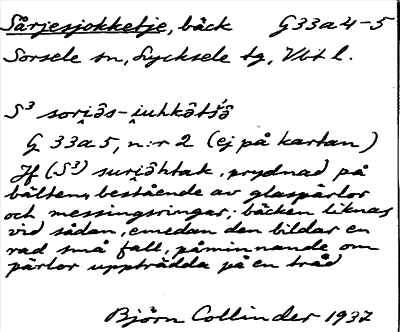 Sårjesjokketje, bäck G33a4-5
Sorsele sn, Lycksele tg, Vbt l.
S³ sori̯ȯ̂s-i̯uhkȯ̂tšȯ̂
G 33a5, n:r 2 (ej på kartan)
Jf (S³) suri̯ȯ̂htak, prydnad på
bälten, bestående av glaspärlor
och messingsringar; bäcken liknas
vid sådan, emedan den bildar en
rad små fall, påminnande om
pärlor uppträdda på en tråd
Björn Collinder 1937